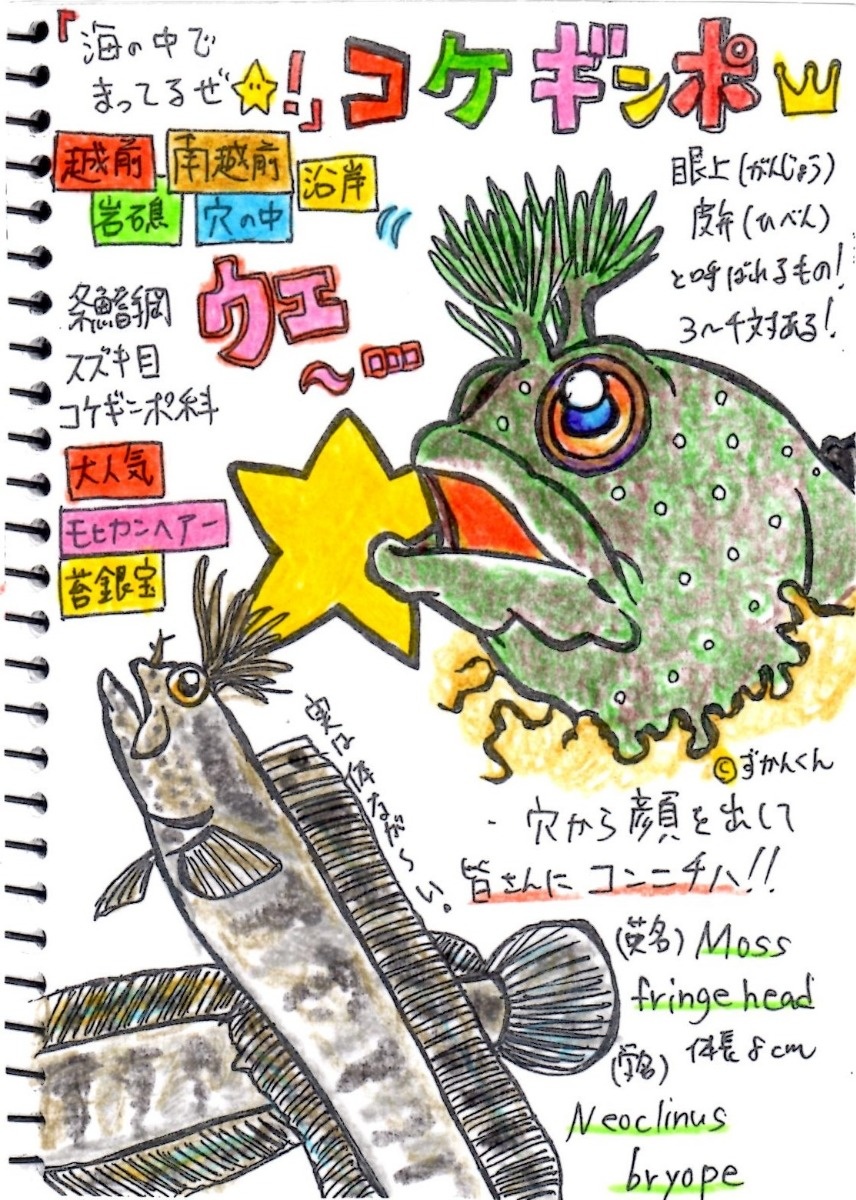 「海の中で
まってるぜ!」
コケギンポ
越前 南越前 沿岸
岩礁 穴の中
眼上(がんじょう)
皮弁(ひべん)
と呼ばれるもの!
3〜4対ある!
ウェ
〜…
条鰭綱
スズキ目
コケギンポ科
大人気
モヒカンヘアー
苔銀宝
実は体なが〜い。
©ずかんくん
・穴から顔を出して
皆さんに コンニチハ!!
(英名) Moss
fringe head
体長8cm
(学名)
Neoclinus
bryope